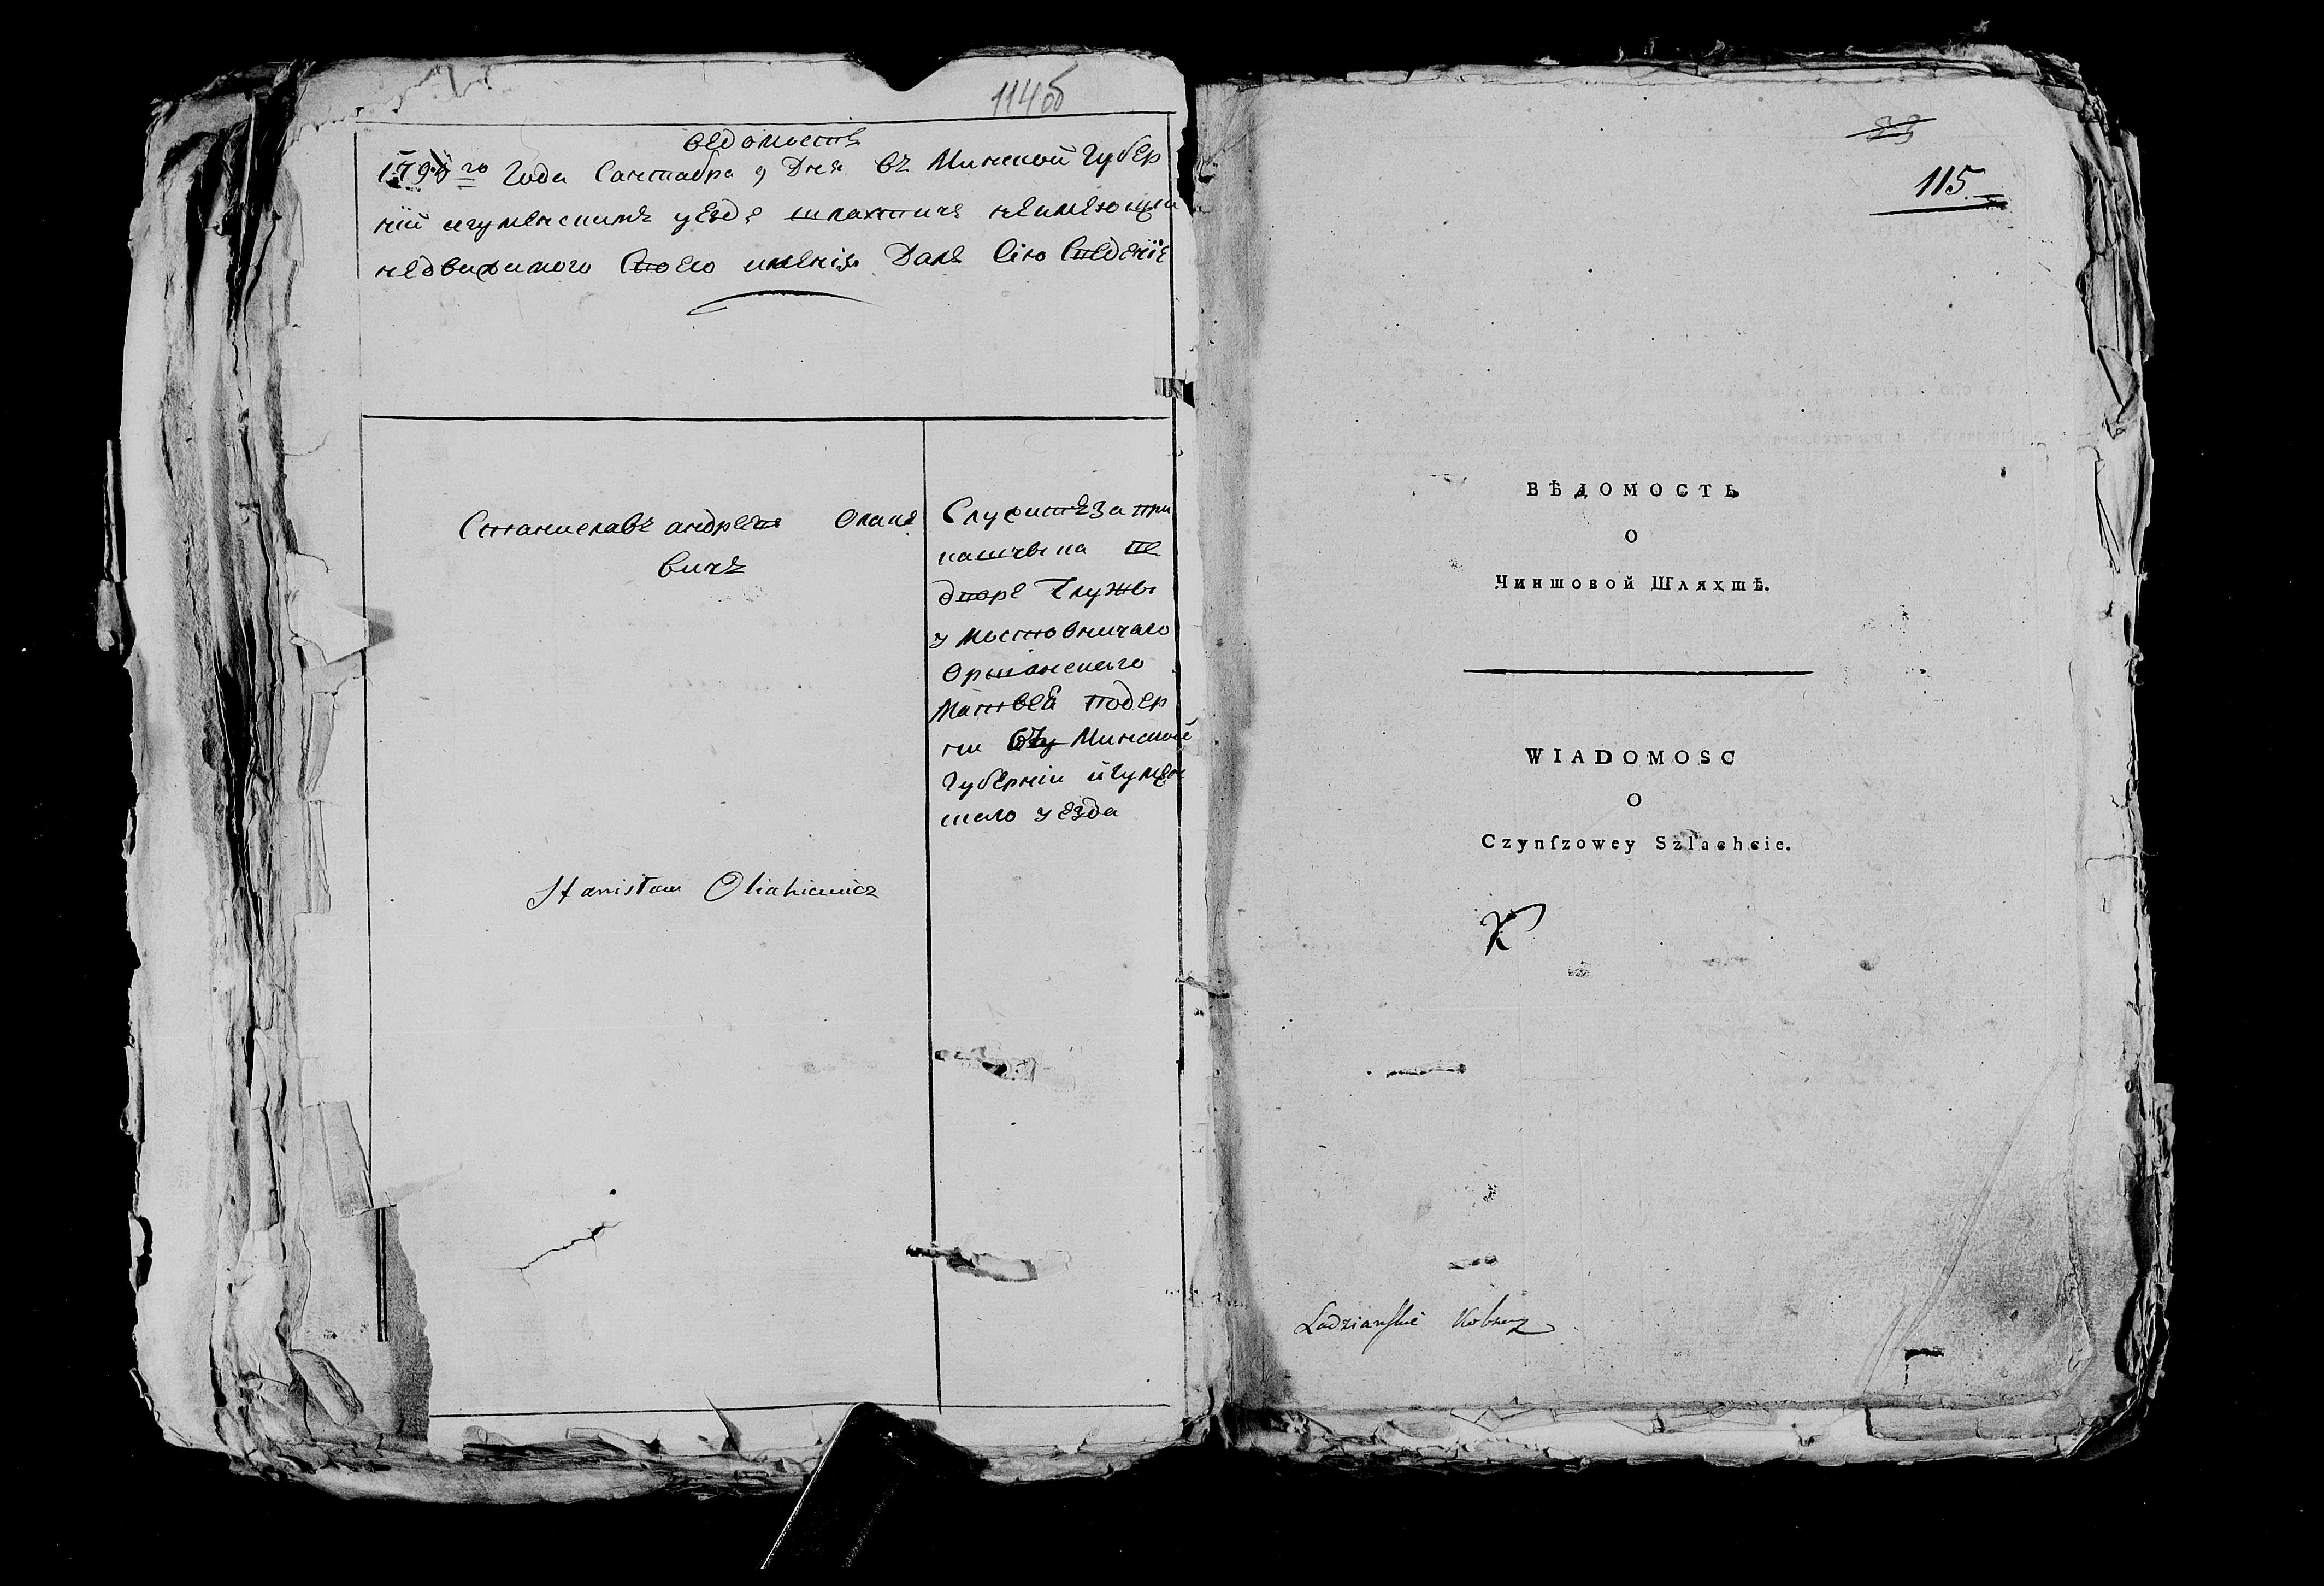 114об
ведомость
179 го года Сентабра 9 Дня въ Минской Губер
ній игуменскимъ уезде шлахтичъ неимеющи
недвижимого Своего имения Далъ Сію Сведение
Станиславъ андреевъ Оляхе
вичъ
Служитъ за три
в
дворе Службы
у Мостовничаго
Оршанского
Матвея Подер
ни Минской
Губерніи игумен
шаго уезда
Stanisław Oliahiewicz
33
115.
ВѢДОМОСТЬ
О
Чиншовой Шляхтѣ.
WIADOMOSC
O
Czynſzowey Szlachcie.
K
Ladzianſkie